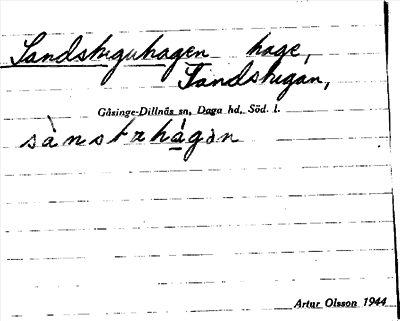 Sandstuguhagen hage,
Sandstugan,
Gåsinge-Dillnäs sn, Daga hd, Söd. l.
Artur Olsson 1944